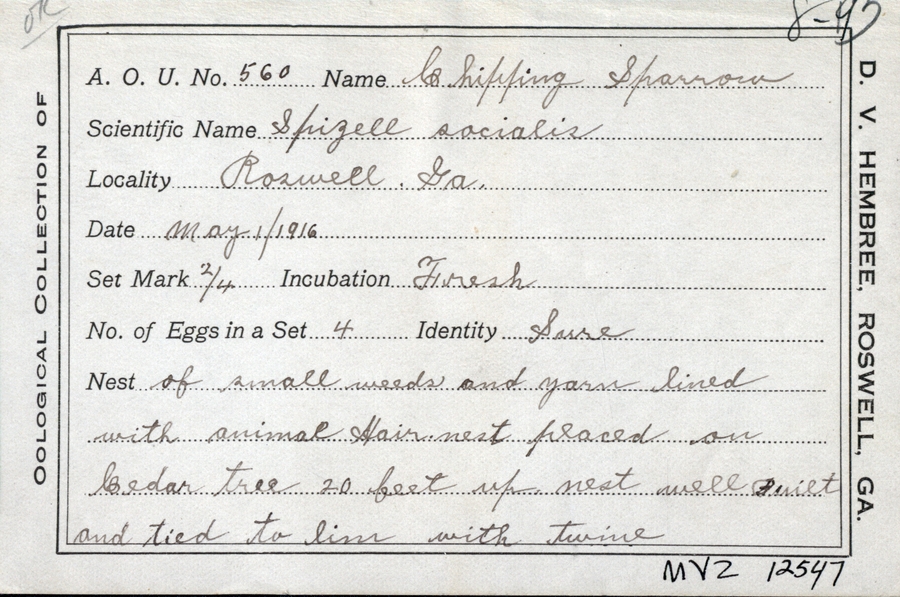 OK
8-43
OOLOGICAL COLLECTION OF
D. V. HEMBREE, ROSWELL, GA.
A. O. U. No. 560 Name Chipping Sparrow
Scientific Name Spizell socialis
Locality Roswell. Ga.
Date May 1/1916
Set Mark 2/4 Incubation Fresh
No. of Eggs in a Set 4 Identity Sure
Nest of small weeds and yarn lined
with animal Hair. nest placed on
Cedar tree 20 feet up. nest well built
and tied to lim with twine
MVZ 12547